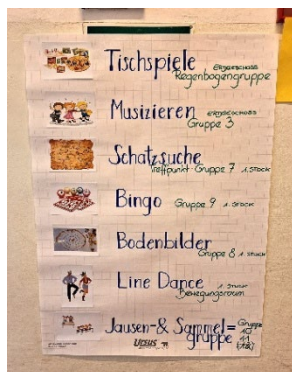 Tischspiele ERDGESCHOSS
Regenbogengruppe
Musizieren ERDGESCHOSS
Gruppe 3
Schatzsuche
Treffpunkt Gruppe 7 1. STOCK
Bingo Gruppe 9 1. STOCK
Bodenbilder
Gruppe 8 1. STOCK
Line Dance 1. STOCK
Bewegungsraum
Jausen- & Sammel= Gruppe
gruppe 10
11